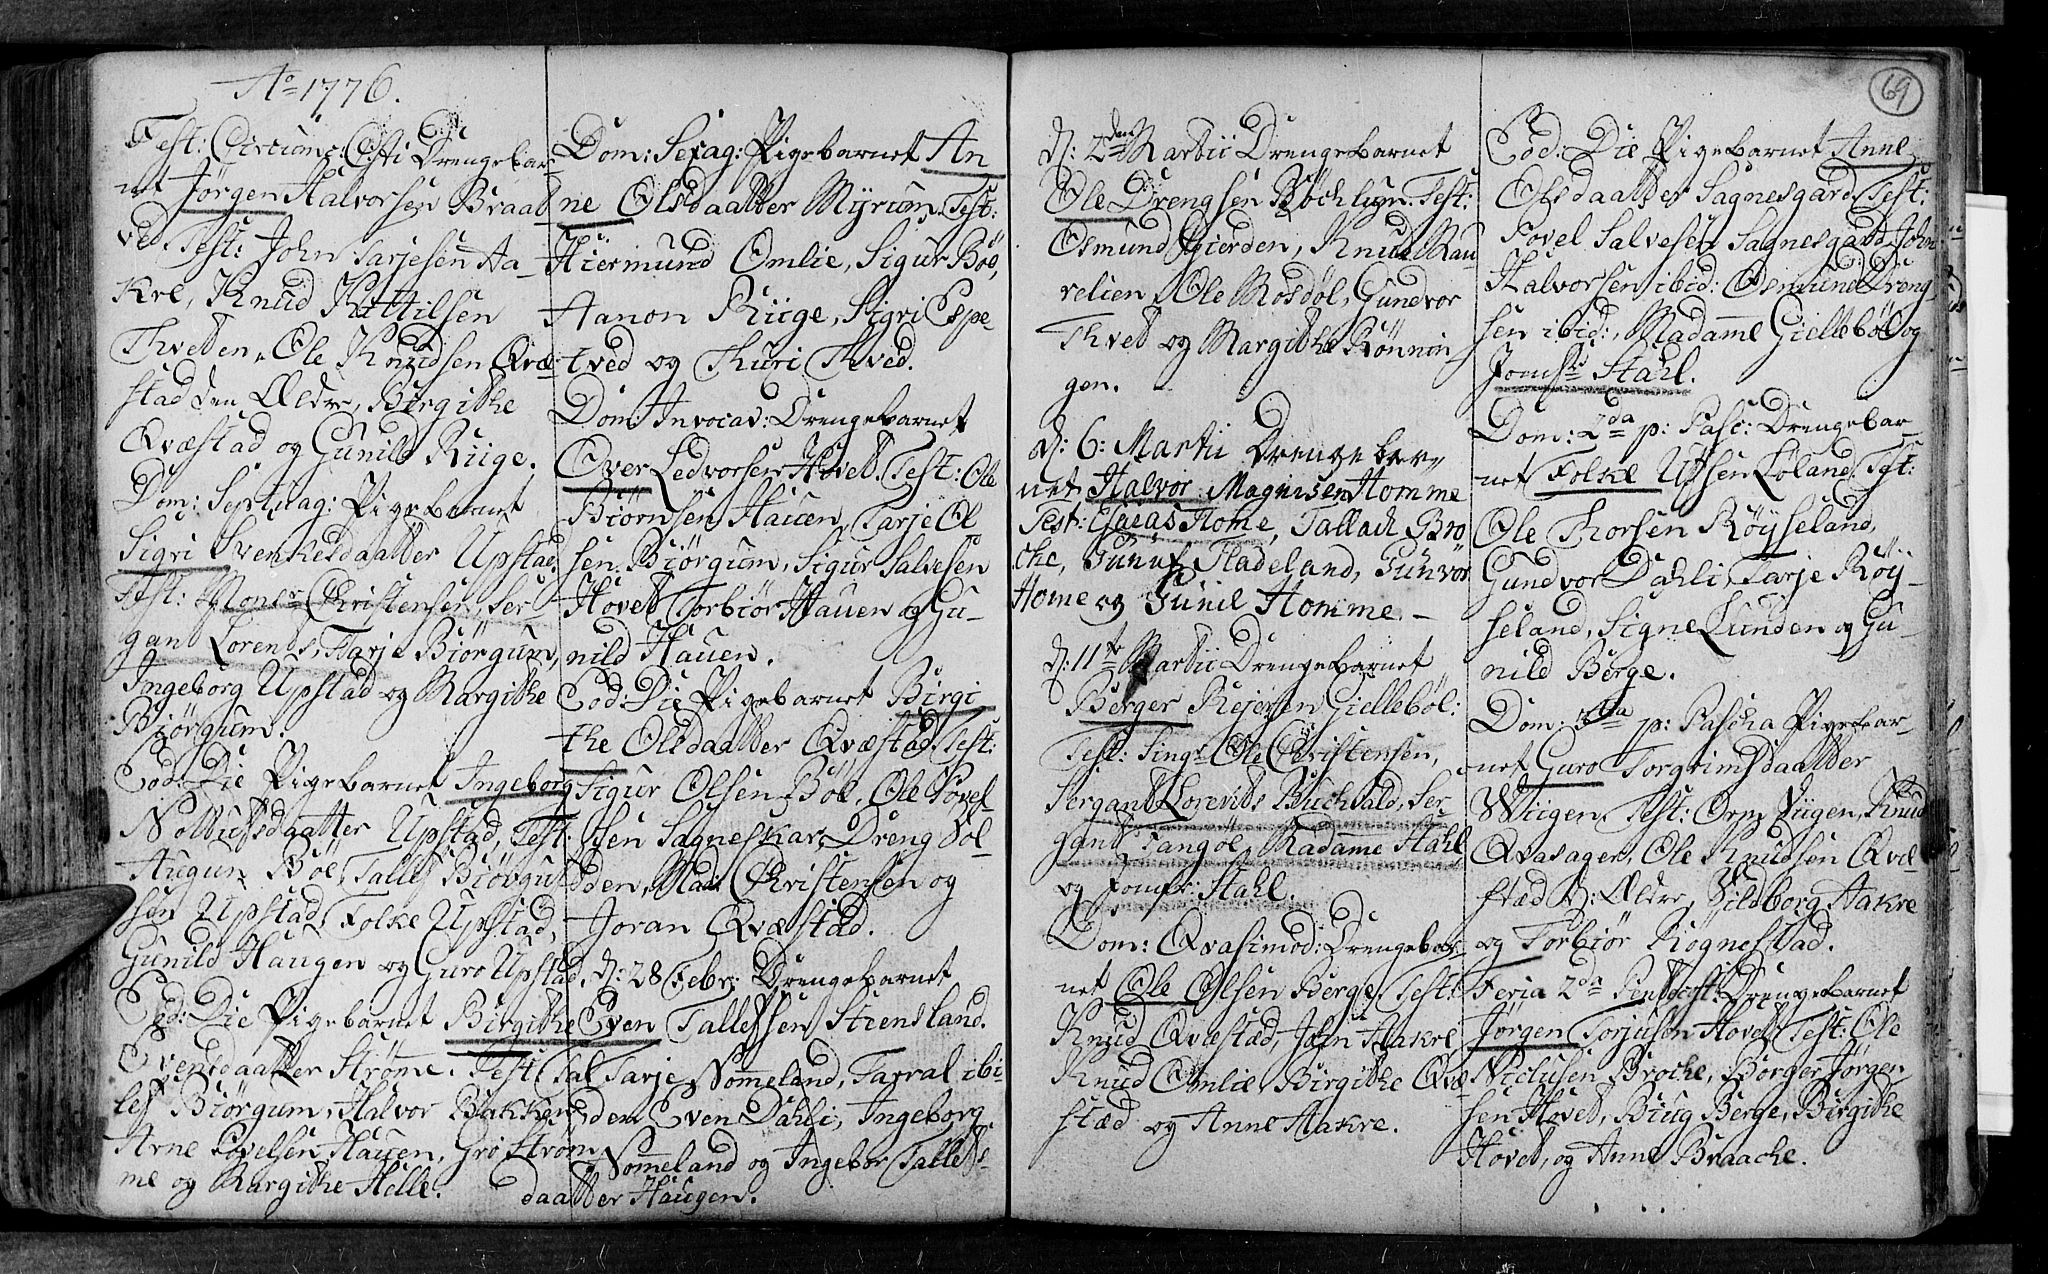 Aº 1776.
Fest: Circumc: Xsti Drengebar-
net Jørgen Halvorsen Braat
ved Test: John Tarjesen Aa-
kre, Knud Kittilsen
Thveden, Ole Knudsen Qvæ-
stad den Ældre, Birgithe
Qvæstad og Gunild Riige.
Dom: Septuag: Pigebarnet
Sigri Svenkesdaatter Upstad.
Test: Monsr Christensen, Ser-
gan Lorents, Tarje Biørgum,
Ingeborg Upstad og Margithe
Biørgum.
Eod: Die Pigebarnet Ingeborg
Nottulfsdaatter Upstad, Test:
Augun Böe, Tallef Biörgul
sen Upstad, Folke Upstad,
Gunild Haugen og Guro Upstad.
Eod: Die Pigebarnet Birgithe
Evensdaatter Strömе. Test: Tal
lef Biørgum, Halvor Bakken,
Arne Povelsen Hauen, Gro Strøm
me og Margithe Helle.
Dom: Sexag: Pigebarnet An
ne Olsdaatter Myrum, Test:
Hiermund Omlie, Sigur Böe,
Aanon Riige, Sigri Espe
tved og Thuri Tved.
Dom: Invocav: Drengebarnet
Over Ledvorsen Hovet. Test: Ole
Biörnsen Hauen, Tarje Ol
sen Biørgum, Sigur Salvesen
Hovet Torbiør Hauen og Gu-
nild Hauen.
Eod: Die Pigebarnet Birgi
the Olsdaatter Qvæstad. Test:
Sigur Olsen Böe, Ole Povel
sen Sagneskar, Dreng Dol-
den, Mad: Christensen og
Joran Qvæstad.
d: 28 Febr: Drengebarnet
Even Tallefsen Stensland.
Tarje Nommeland, Tarral ibi-
dem Even Dahli, Ingeborg
Nommeland og Ingebor Tallefs-
daatter Haugen.
69
d: 2den Martii Drengebarnet
Ole Drengsen Böchlum. Test:
Osmund Gierden, Knud Rau
relien, Ole Rosdøl, Gundvor
Thvet og Margithe Rønnin
gen.
d: 6: Martii Drengebar-
net Halvor Magnisen Homme
Test: Esaias Home, Tallack Bro
che, Gunuf Fladeland, Gunvor
Home og Gunil Homme. -
d: 11te Martii Drengebarnet
Berger Rejersen Gielleböl:
Test: Singr Ole Christensen,
Sergant Lorents Buchvald, Ser-
gant Fangöl, Madamme Stahl
og Jomfr: Stahl.
Dom: Qvasimod: Drengebar
net Ole Olsen Berge, Test:
Knud Qvæstad, John Aakre
Knud Omlie, Birgithe Qvæ
stad og Anne Aakre.
Eod: Die Pigebarnet Anne
Olsdaatter Sagnesgard Test:
Povel Salvesen Sagnesgard, John
Halvorsen ibid: Osmund Dreng-
sen ibid:, Madamme Gielleböl og
Jomfr Stahl.
Dom: 2da p: Pasc: Drengebar-
net Folke Ufsen Löland, Tst:
Ole Thorsen Røyseland,
Gundvor Dahli, Tarje Röy-
seland, Signe Lunden og Gu-
nild Berge.
Dom: 3tia p: Pascha Pigebar-
net Guro Torgrimsdaatter
Wiigen. Test: Orm Viigen, Knud
Qvasager, Ole Knudsen Qvæ
stad d: Ældre, Vildborg Aakre
og Torbiör Rögnestad.
Feria 2da Pentecost: Drengebarnet
Jørgen Torjusen Hovet, Test: Ole
Niclusen Broche, Börger Jørgen
sen Hovet, Biug Berge, Birgithe
Hovet, og Anne Braache.